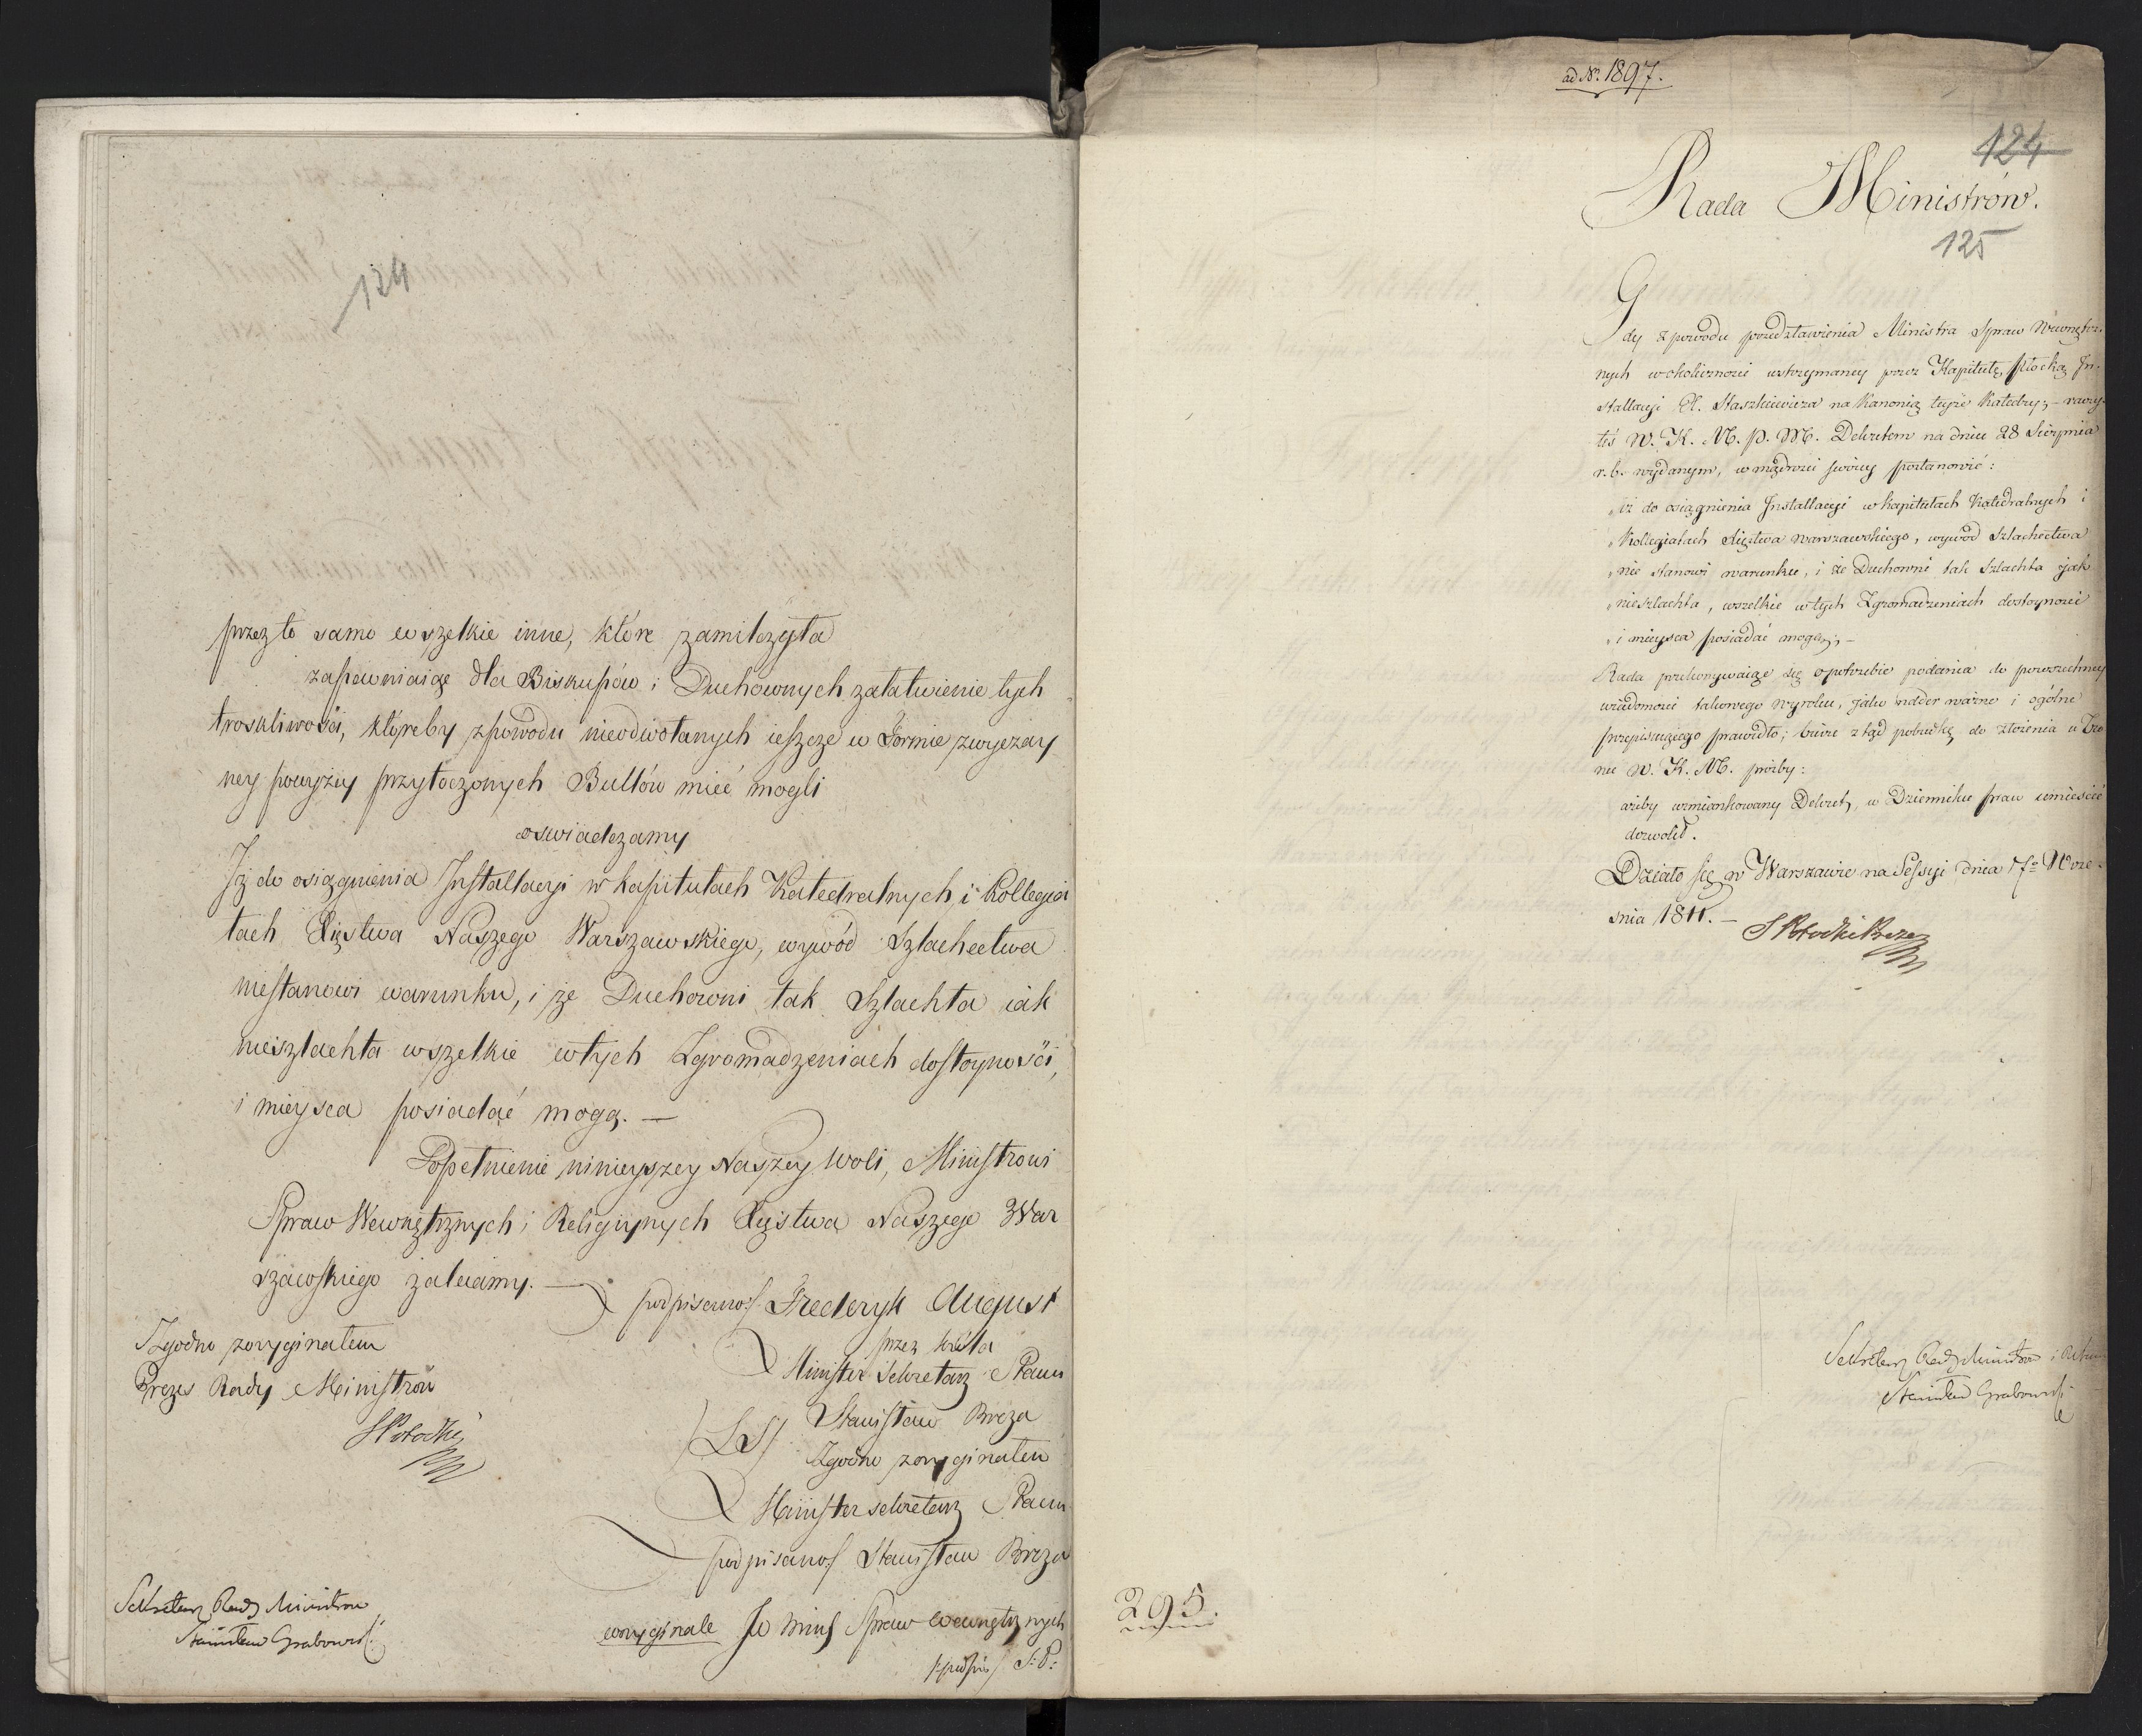 124
przez to samo wszelkie inne, które zamilczyła
zapewniaiąc dla Biskupów i Duchownych załatwienie tych
troskliwości, któreby z powodu nieodwołanych ieszcze w Formie zwyczay
ney powyżey przytoczonych Bullów mieć mogli
oswiadczamy
Iż do osiągnienia Installacyi w kapitułach Katedralnych, i Kollegia
tach Xięstwa Naszego Warszawskiego, wywód Szlachectwa
niestanowi warunku, i że Duchowni tak Szlachta iak
nieszlachta wszelkie w tych Zgromadzeniach dostoyności,
i mieysca posiadać mogą. —
Dopełnienie ninieyszey Naszey Woli, Ministrowi
Spraw Wewnętrznych i Religiynych Xięstwa Naszego War
szawskiego zalecamy. —
podpisano/ Frederyk August
przez Króla
Minister Sekretarz Stanu
/LS/ Stanisław Breza
Zgodno z oryginałem
Minister sekretarz Stanu
podpisano/ Stanisław Breza
w oryginale JW Mins Spraw Wewnętrznych
/:podpis/ S: P:
Zgodno z oryginałem
Prezes Rady Ministrów
SPotocki
Sekretarz Rady Ministrow
Stanisław Grabowski
ad No. 1897.
124
Rada Ministrów.
125
Gdy z powodu przedstawienia Ministra Spraw Wewnętrz-
nych w okoliczności wstrzymaney przez Kapitułę Płocką In-
stallacyi X. Staszkiewicza na Kanonią teyże Katedry; – raczy-
łeś W. K. M. P. M. Dekretem na dniu 28 Sierpnia
r. b. wydanym, w mądrości swoiey postanowić:
„iż do osiągnienia Installacyi w kapitułach Katedralnych i
„Kollegiatach Xięstwa Warszawskiego, wywód Szlachectwa
„nie stanowi warunku, i że Duchowni tak Szlachta jak
„nieszlachta, wszelkie w tych Zgromadzeniach dostoyności
„i mieysca posiadać mogą; –
Rada przekonywaiąc się o potrzebie podania do powszechney
wiadomości takowego wyroku, jako nader ważne i ogólne
przepisuiącego prawidło; bierze ztąd pobudkę do złożenia u Tro
nu W. K. M. prośby:
ażeby wzmiankowany Dekret, w Dzienniku praw umieścić
dozwolił.
Działo się w Warszawie na Sessyi dnia 17o Wrze-
śnia 1811. –
SPotocki Prezes
Sekretarz Rady Ministrow
Stanisław Grabowski
295.